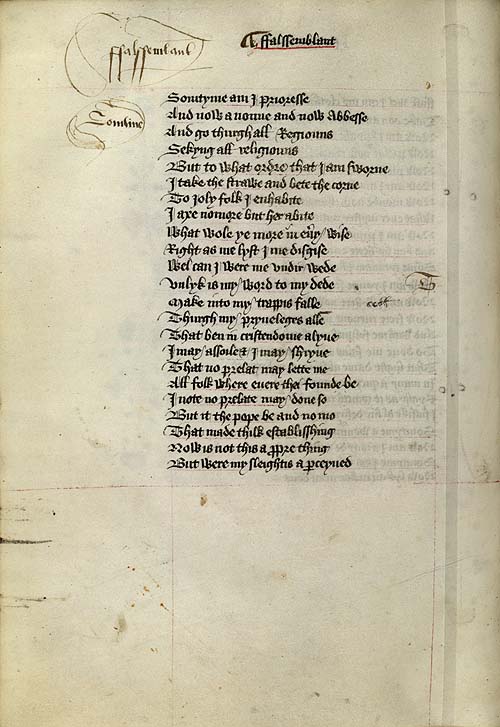 ffalssemblant
ffalssemblant
Somtyme am I prioresse
And now a nonne and now Abbesse
And go thurgh all Regiouns
Sekyng all religiouns
But to what ordre that I am sworne
I take the strawe and bete the corne
To ioly folk I enhabite
I axe nomore but her abite
What wole ye more in euy wise
Right as me lyst I me disgise
Wel can I were me vndir wede
Vnlyk is my word to my dede
Make into my trappis falle
Thurgh my pryueleges alle
That ben in cristendome alyue
I may assoile & I may shryue
That no prelat may lette me
All folk where euere thei founde be
I note no prelate may done so
But it the pope be and no mo
That made thilk establisshing
Now is not this a ppre thing
But were my sleightis apceyued